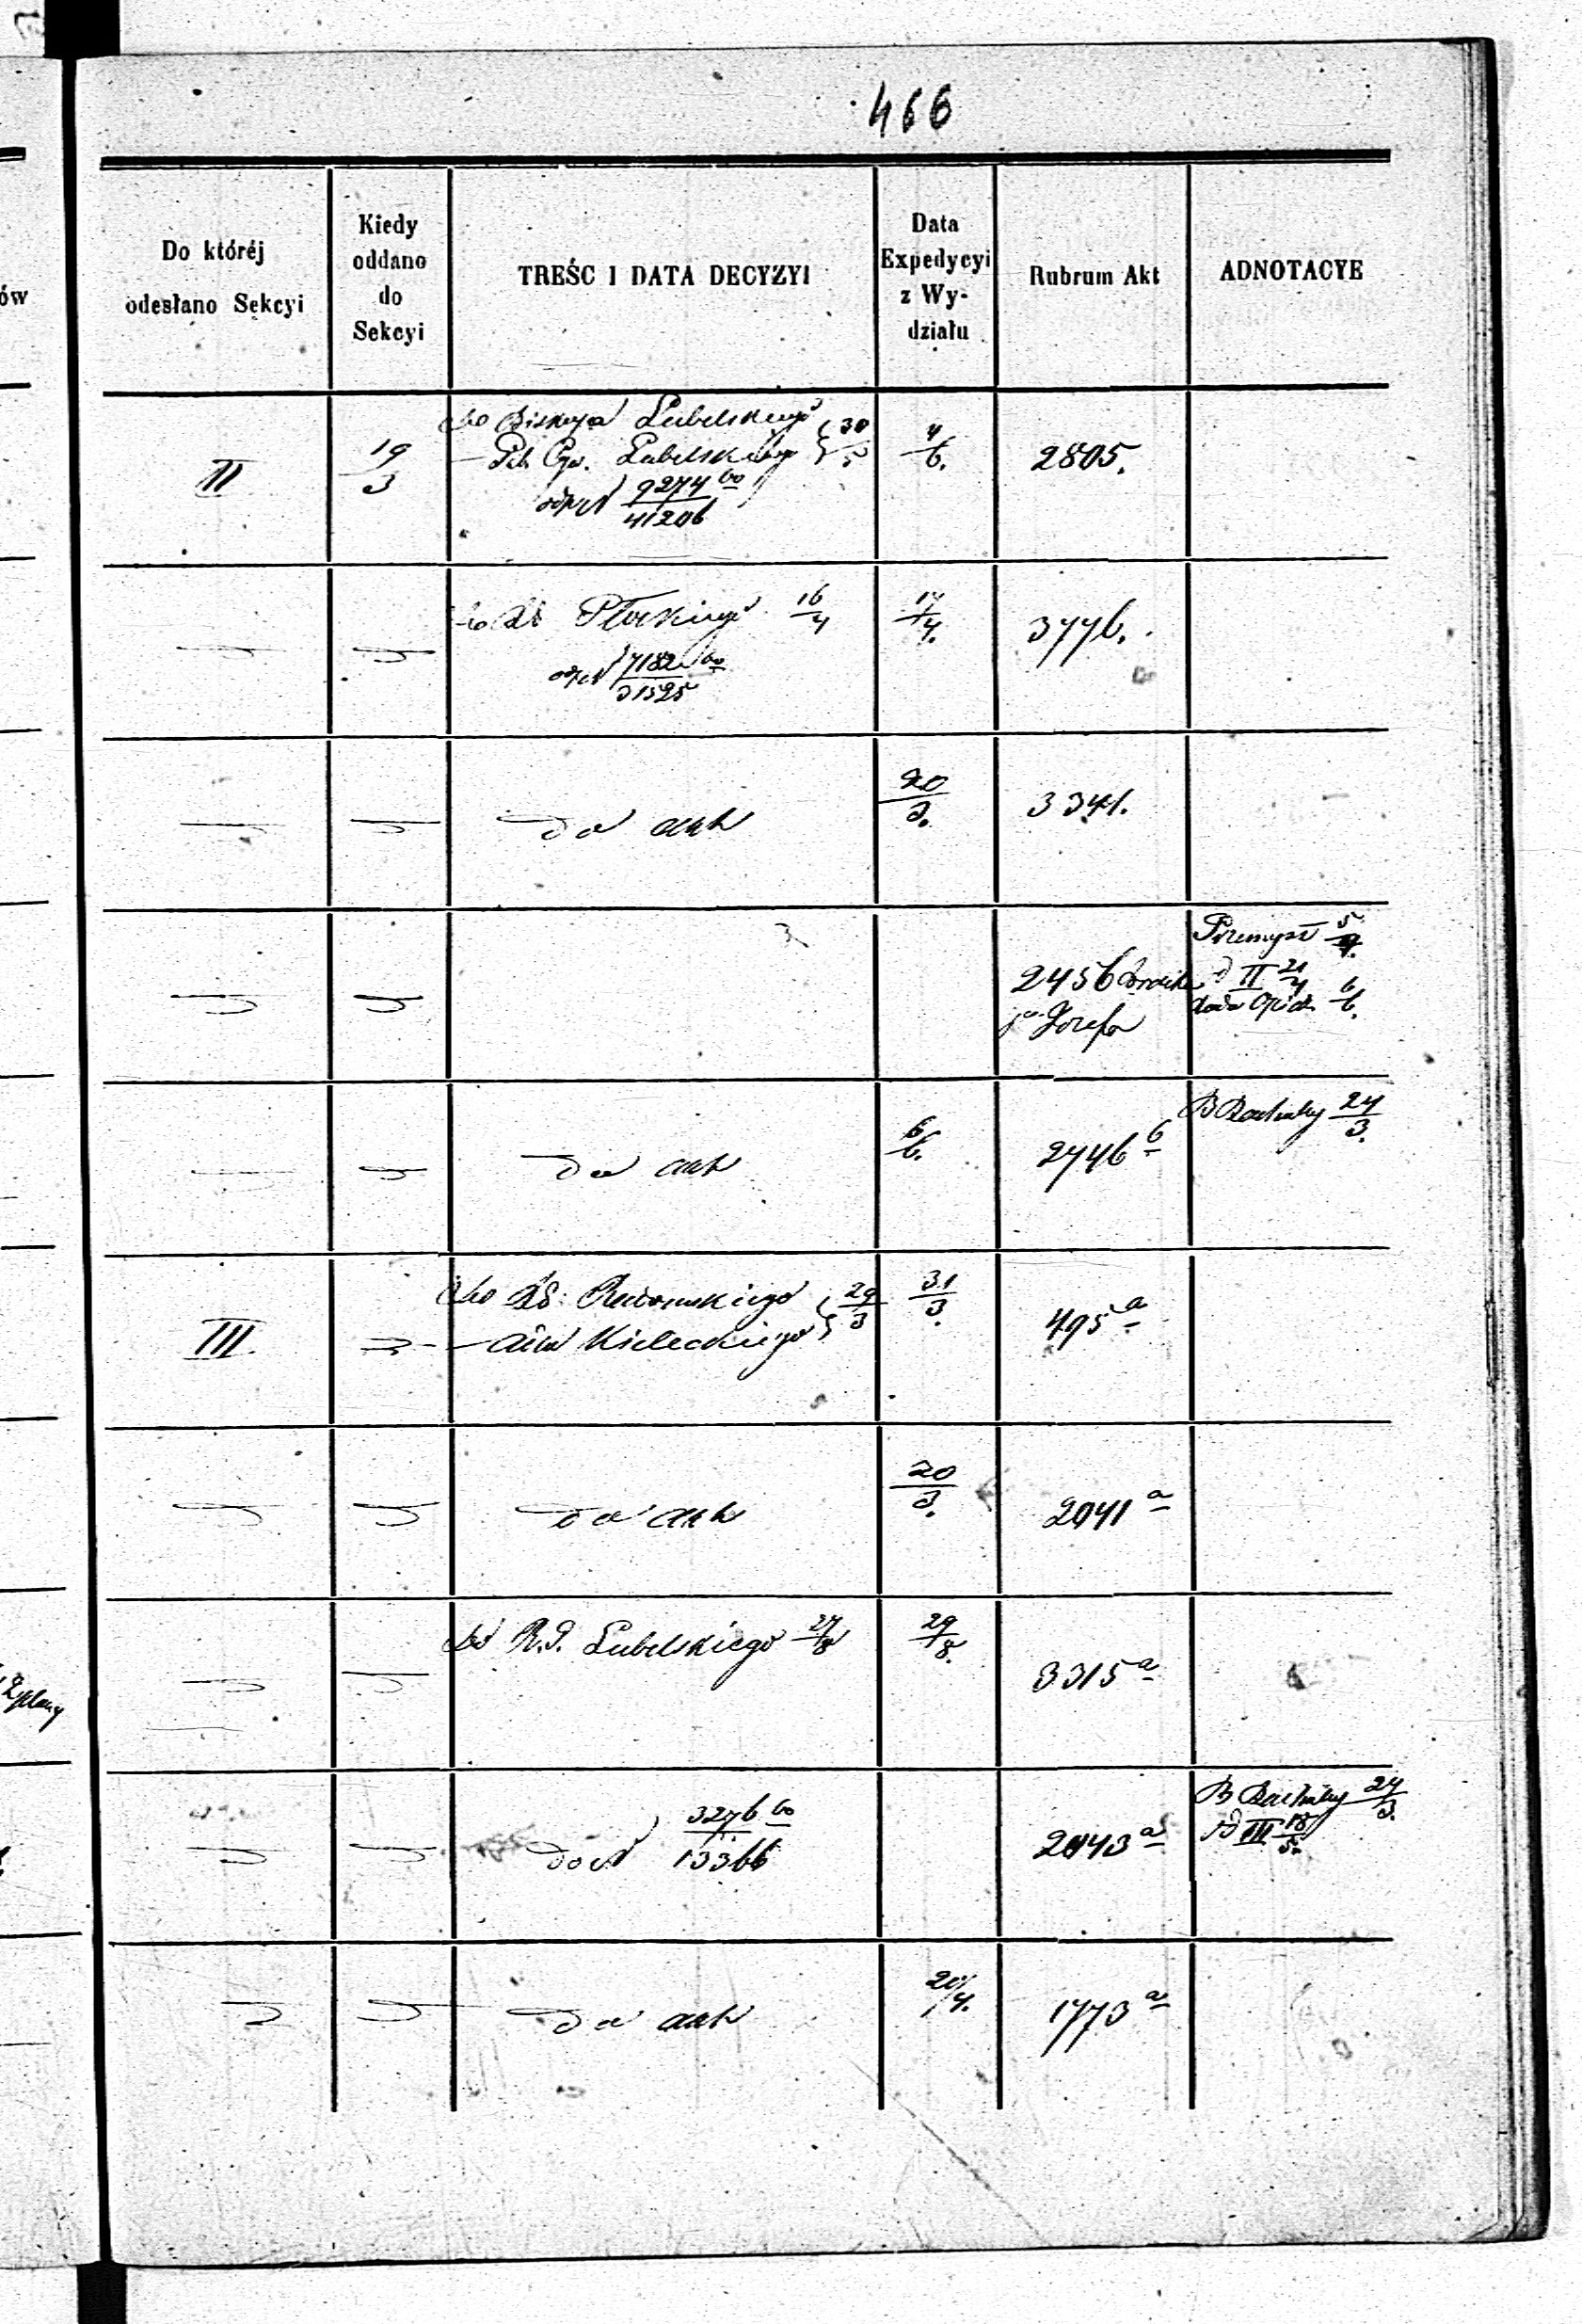 466
Do któréj
odesłano Sekcyi
Kiedy
oddano
do
Sekcyi
TREŚC I DATA DECYZYI
Data
Expedycyi
z Wy-
działu
Rubrum Akt
ADNOTACYE
ów
II
19/3
Do Biskupa Lubelskiego
Lubelskiego } 30/5
9274/41206
4/6.
2805.
Płockiego 16/4
7182/31525
17/4.
3776.
do akt
20/3.
3341.
2456
Józefa
Przemysł 5/4.
II 21/4
6/6.
do akt
6/6.
2746 b
24/3.
III.
Do Radomskiego
Kieleckiego } 29/3
31/3.
495 a
do akt
20/3.
2041 a
Do R.G. Lubelskiego 27/8
29/8.
3315 a
3276/13366
2043 a
24/3.
III 18/5.
do akt
20/4.
1773 a